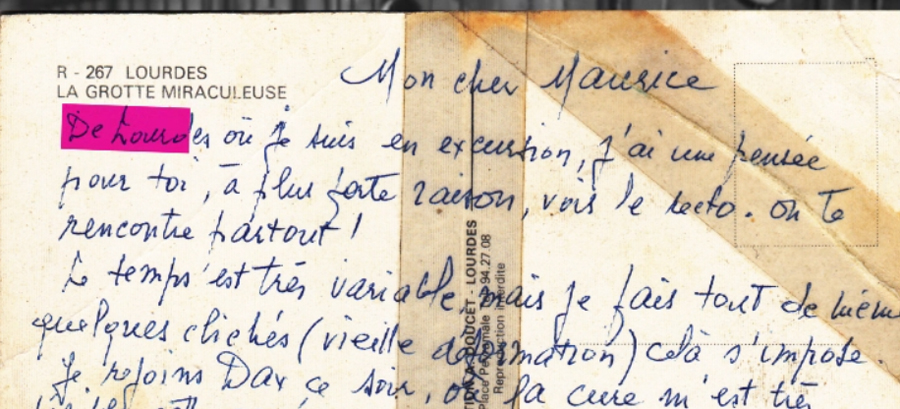 R - 267 LOURDES
LA GROTTE MIRACULEUSE
Mon cher Maurice
De Lourdes où je suis en excursion, j'ai une pensée
pour toi, à plus forte raison, vois le recto. on te
rencontre partout !
Le temps est très variable, mais je fais tout de même
quelques clichés (vieille déformation) celà s'impose.
Je rejoins Dax ce soir, où la cure m'est très
DOUCET - LOURDES
94.27.08
Reproduction interdite